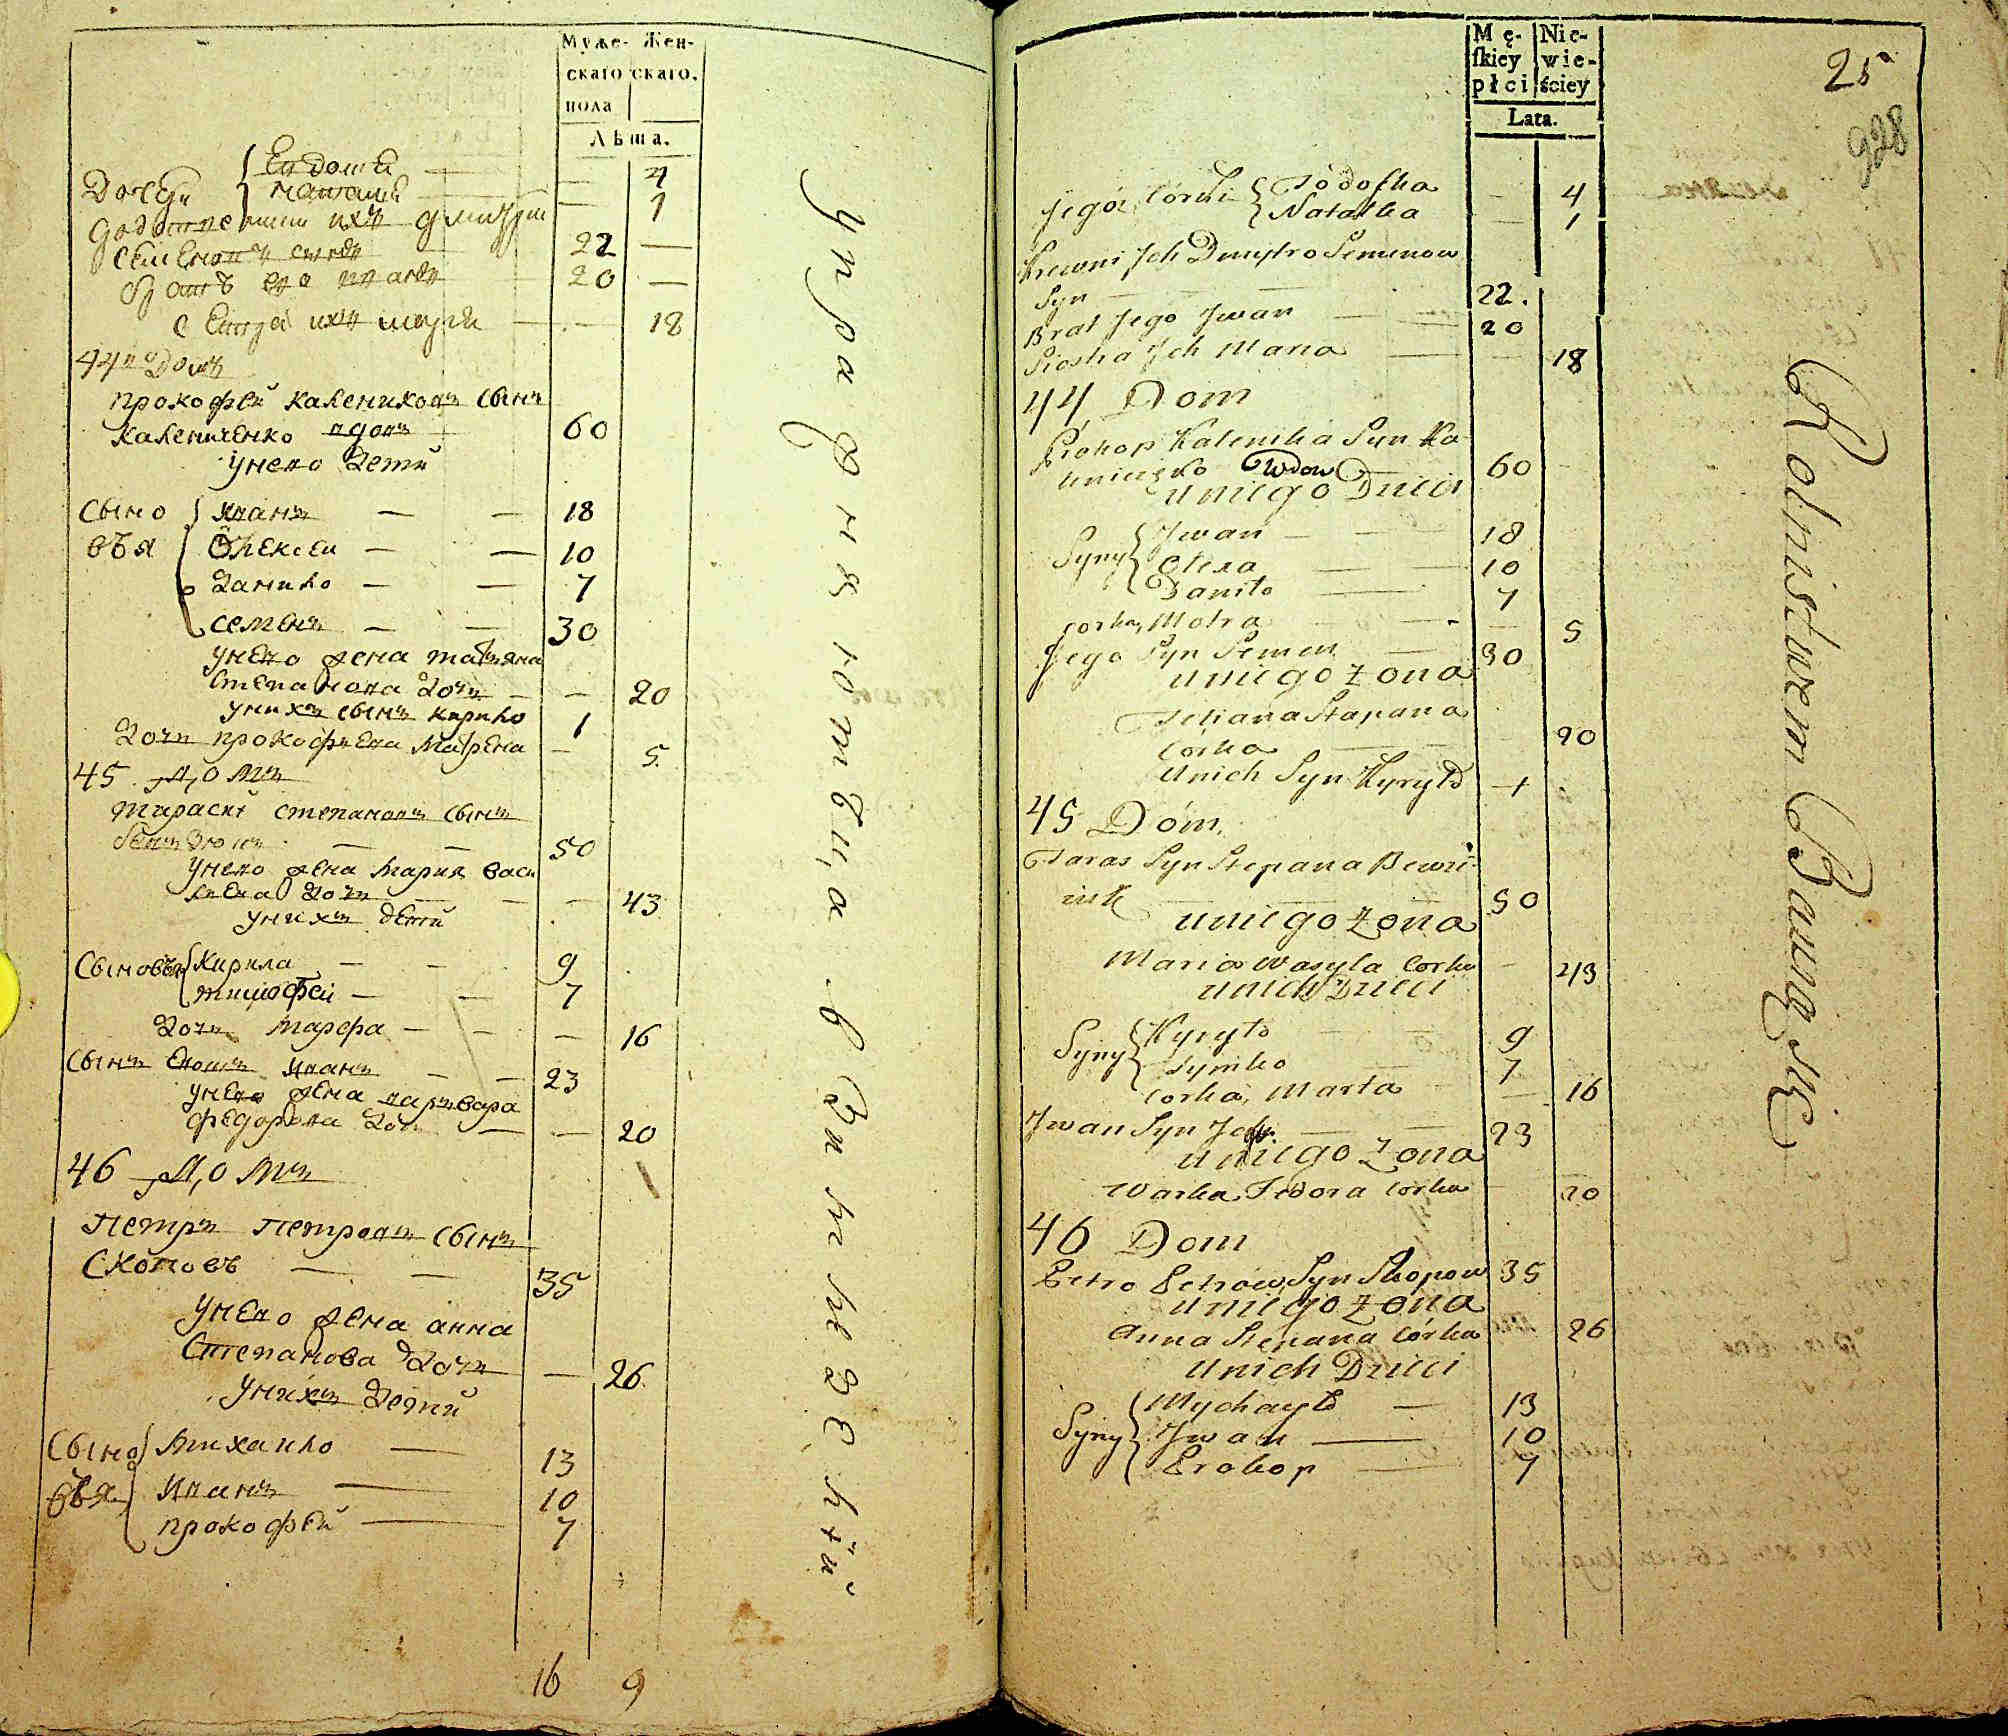 Муже-
скаго
пола
Жен-
скаго.
Лѣта.
Дочери { Евдокия — — 4
Наталия — — 1
родственники ихъ дмитри
семеновъ сынъ 22 —
братъ его иванъ 20 —
сестра ихъ мария — — 18
44й Домъ
прокофей калениковъ сынъ
калениченко вдовъ 60
унего дети
Сыно { иванъ — — 18
вья Олексей — — 10
данило — — 7
семенъ — — 30
унего жена татияна
степанова дочь — — 20
унихъ сынъ кирило 1
дочь прокофиева Марфена — 5.
45 Домъ
тарасий степановъ сынъ
— — 50
унего жена Мария васи
лиева дочь — — 43
унихъ дети
Сыновья { Кирила — — 9
тимофей — — 7
дочь марфа — — — 16
Сынъ иванъ — — 23
унего жена варвара
федорова дочь — — 20
46 Домъ
Петръ петровъ сынъ
Скоповъ — — 35
унего жена анна
Степанова дочь — 26.
унихъ дети
Сыно { михаило — 13
вья иванъ — 10
прокофей — 7
16 9
упражняются въ
земледелии
Mę-
skiey
płci
Nie-
wie-
ściey
Lata.
25
928
Jego Córki { Todoska — 4
Natalka — 1
Krewni Jch Dmytro Semenow
Syn — — 22.
Brat Jego Jwan — — 20
Siostra Jch Maria — — 18
44 Dom
Prokop Kalenika Syn Ka
liniczęko Wdow 60 —
uniego Dzieci
Syny { Jwan — — 18
Olexa — — 10
Daniło — 7
corka, Motra — — 5
Jego Syn Semen — 30
uniego Żona
Tetiana Stepana
Corka — — 20
unich Syn Kyryło 1
45 Dóm.
Taras Syn Stepana
50
uniego Żona
Maria Wasyla Corka — 43
unich Dzieci
Syny { Kyryło — 9
Tymko — 7
corka, Marta — 16
Jwan Syn Jch — — 23
uniego Żona
Warka Fedora Corka — 20
46 Dom
Petro Petrów Syn Skopow 35
uniego Żona
Anna Stepana Córka 26
unich Dzieci
Syny { Mychayło — 13
Jwan — 10
Prokop — 7
Rolnistwem Bawią się